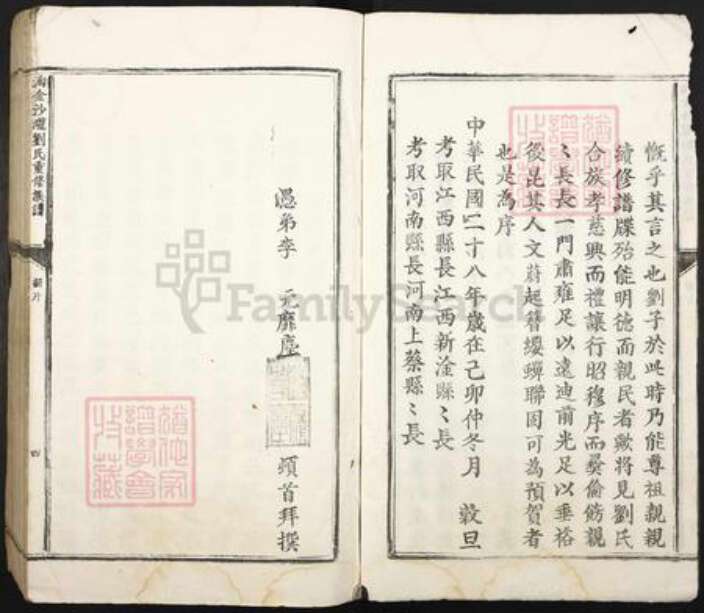 慨乎其言之也劉子於此時乃能尊祖親親
續修譜牒殆能明德而親民者歟將見劉氏
合族孝慈興而禮讓行昭穆序而彝倫飭親
〻長長一門肅雍足以遠迪前光足以垂裕
後昆其人文蔚起簪纓蟬聯固可為預賀者
也是為序
中華民國二十八年歲在己卯仲冬月 穀旦
考取江西縣長江西新淦縣〻長
考取河南縣長河南上蔡縣〻長
愚弟李 元靡塵 頓首拜撰
劉氏重修族譜
四
FamilySearch